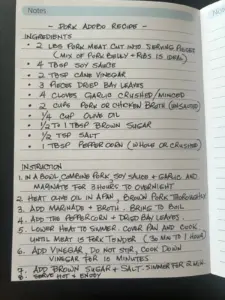 Notes
- PORK ADOBO RECIPE -
INGREDIENTS
• 2 LBS PORK MEAT CUT INTO SERVING PIECES
(MIX OF PORK BELLY + RIBS IS IDEAL)
• 4 TBSP SOY SAUCE
• 2 TBSP CANE VINEGAR
• 3 PIECES DRIED BAY LEAVES
• 4 CLOVES GARLIC CRUSHED/MINCED
• 2 CUPS PORK OR CHICKEN BROTH (UNSALTED)
• 1/4 CUP OLIVE OIL
• 1/2 TO 1 TBSP BROWN SUGAR
• 1/2 TSP SALT
• 1 TBSP PEPPERCORN (WHOLE OR CRUSHED)
INSTRUCTION
1. IN A BOWL, COMBINE PORK, SOY SAUCE + GARLIC AND
MARINATE FOR 3 HOURS TO OVERNIGHT
2. HEAT OLIVE OIL IN A PAN, BROWN PORK THOROUGHLY
3. ADD MARINADE + BROTH. BRING TO BOIL
4. ADD THE PEPPERCORN + DRIED BAY LEAVES.
5. LOWER HEAT TO SIMMER. COVER PAN AND COOK
UNTIL MEAT IS FORK TENDER (30 MIN TO 1 HOUR)
6. ADD VINEGAR. DO NOT STIR, COOK DOWN
VINEGAR FOR 10 MINUTES
7. ADD BROWN SUGAR + SALT. SIMMER FOR
8. SERVE HOT + ENJOY
Notes